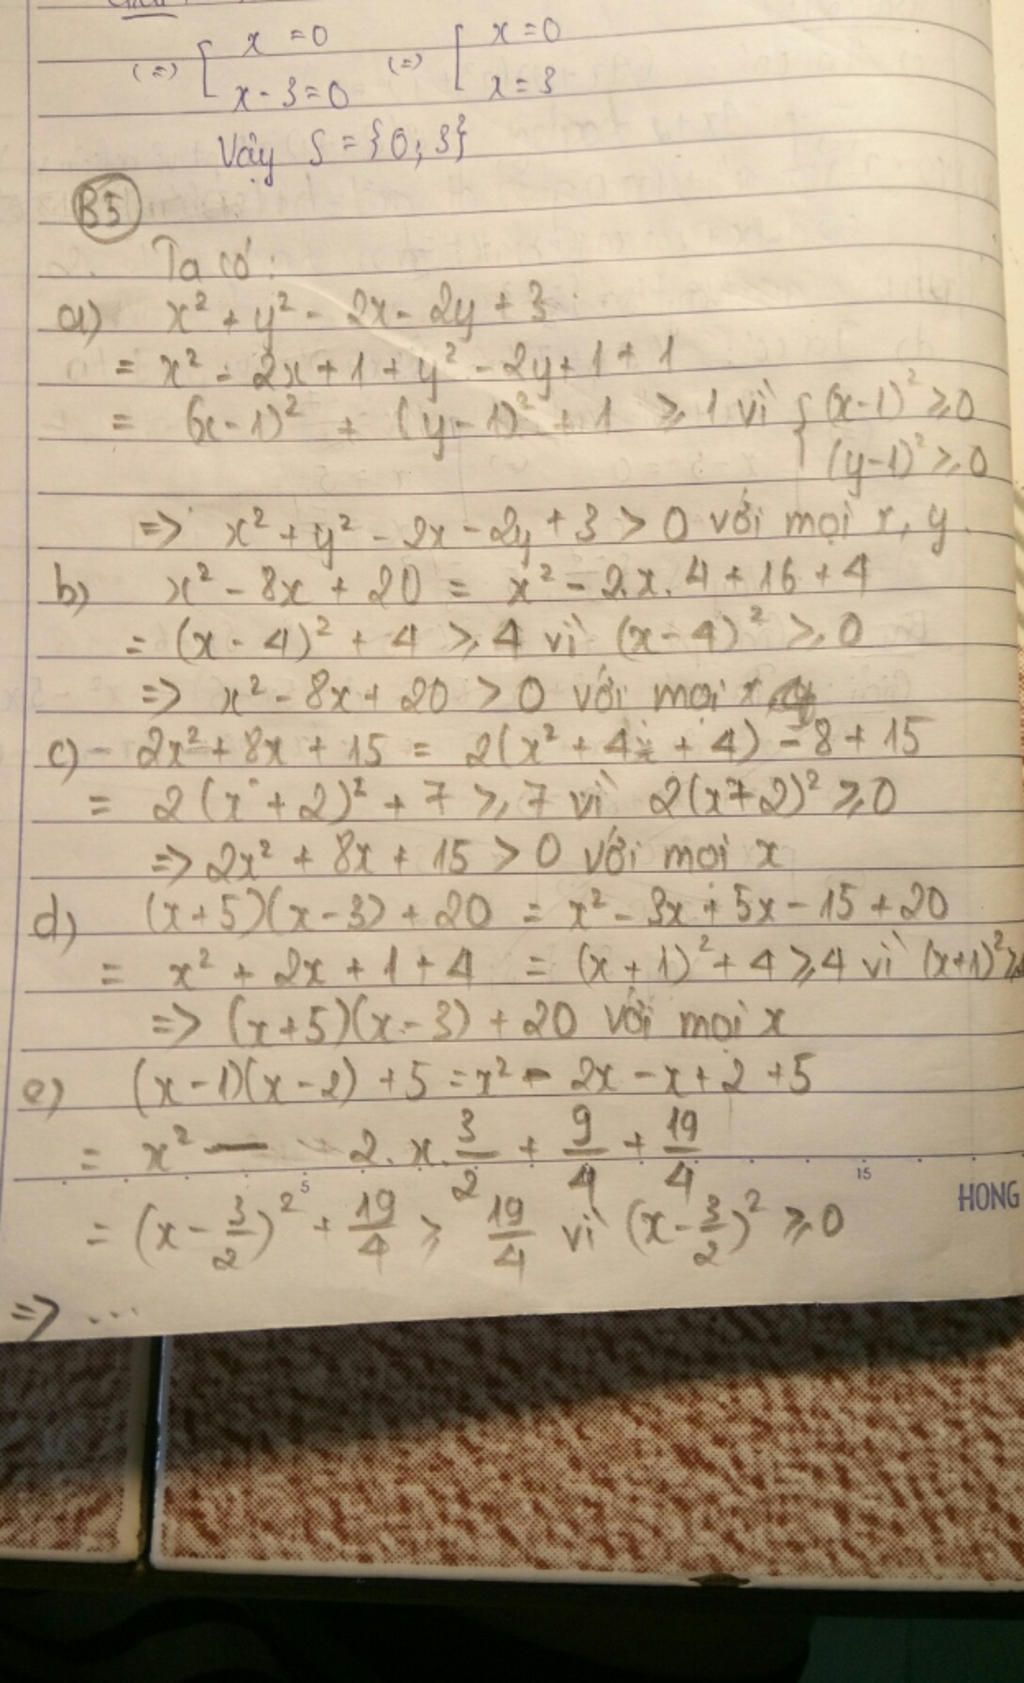 (=) [ x = 0 (=) [ x = 0
x - 3 = 0 x = 3
Vậy S = {0; 3}
B5
Ta có:
a) x² + y² - 2x - 2y + 3
= x² - 2x + 1 + y² - 2y + 1 + 1
= (x - 1)² + (y - 1)² + 1 ≥ 1 vì { (x-1)² ≥ 0
(y-1)² ≥ 0
=> x² + y² - 2x - 2y + 3 > 0 với mọi x, y
b) x² - 8x + 20 = x² - 2.x.4 + 16 + 4
= (x - 4)² + 4 ≥ 4 vì (x - 4)² ≥ 0
=> x² - 8x + 20 > 0 với mọi x
c) - 2x² + 8x + 15 = 2(x² + 4x + 4) - 8 + 15
= 2(x + 2)² + 7 ≥ 7 vì 2(x+2)² ≥ 0
=> 2x² + 8x + 15 > 0 với mọi x
d) (x+5)(x-3) + 20 = x² - 3x + 5x - 15 + 20
= x² + 2x + 1 + 4 = (x + 1)² + 4 ≥ 4 vì (x+1)² ≥
=> (x+5)(x-3) + 20 với mọi x
e) (x-1)(x-2) + 5 = x² - 2x - x + 2 + 5
= x² - 2.x.3/2 + 9/4 + 19/4
5 15 HONG
= (x - 3/2)² + 19/4 ≥ 19/4 vì (x - 3/2)² ≥ 0
=> ...